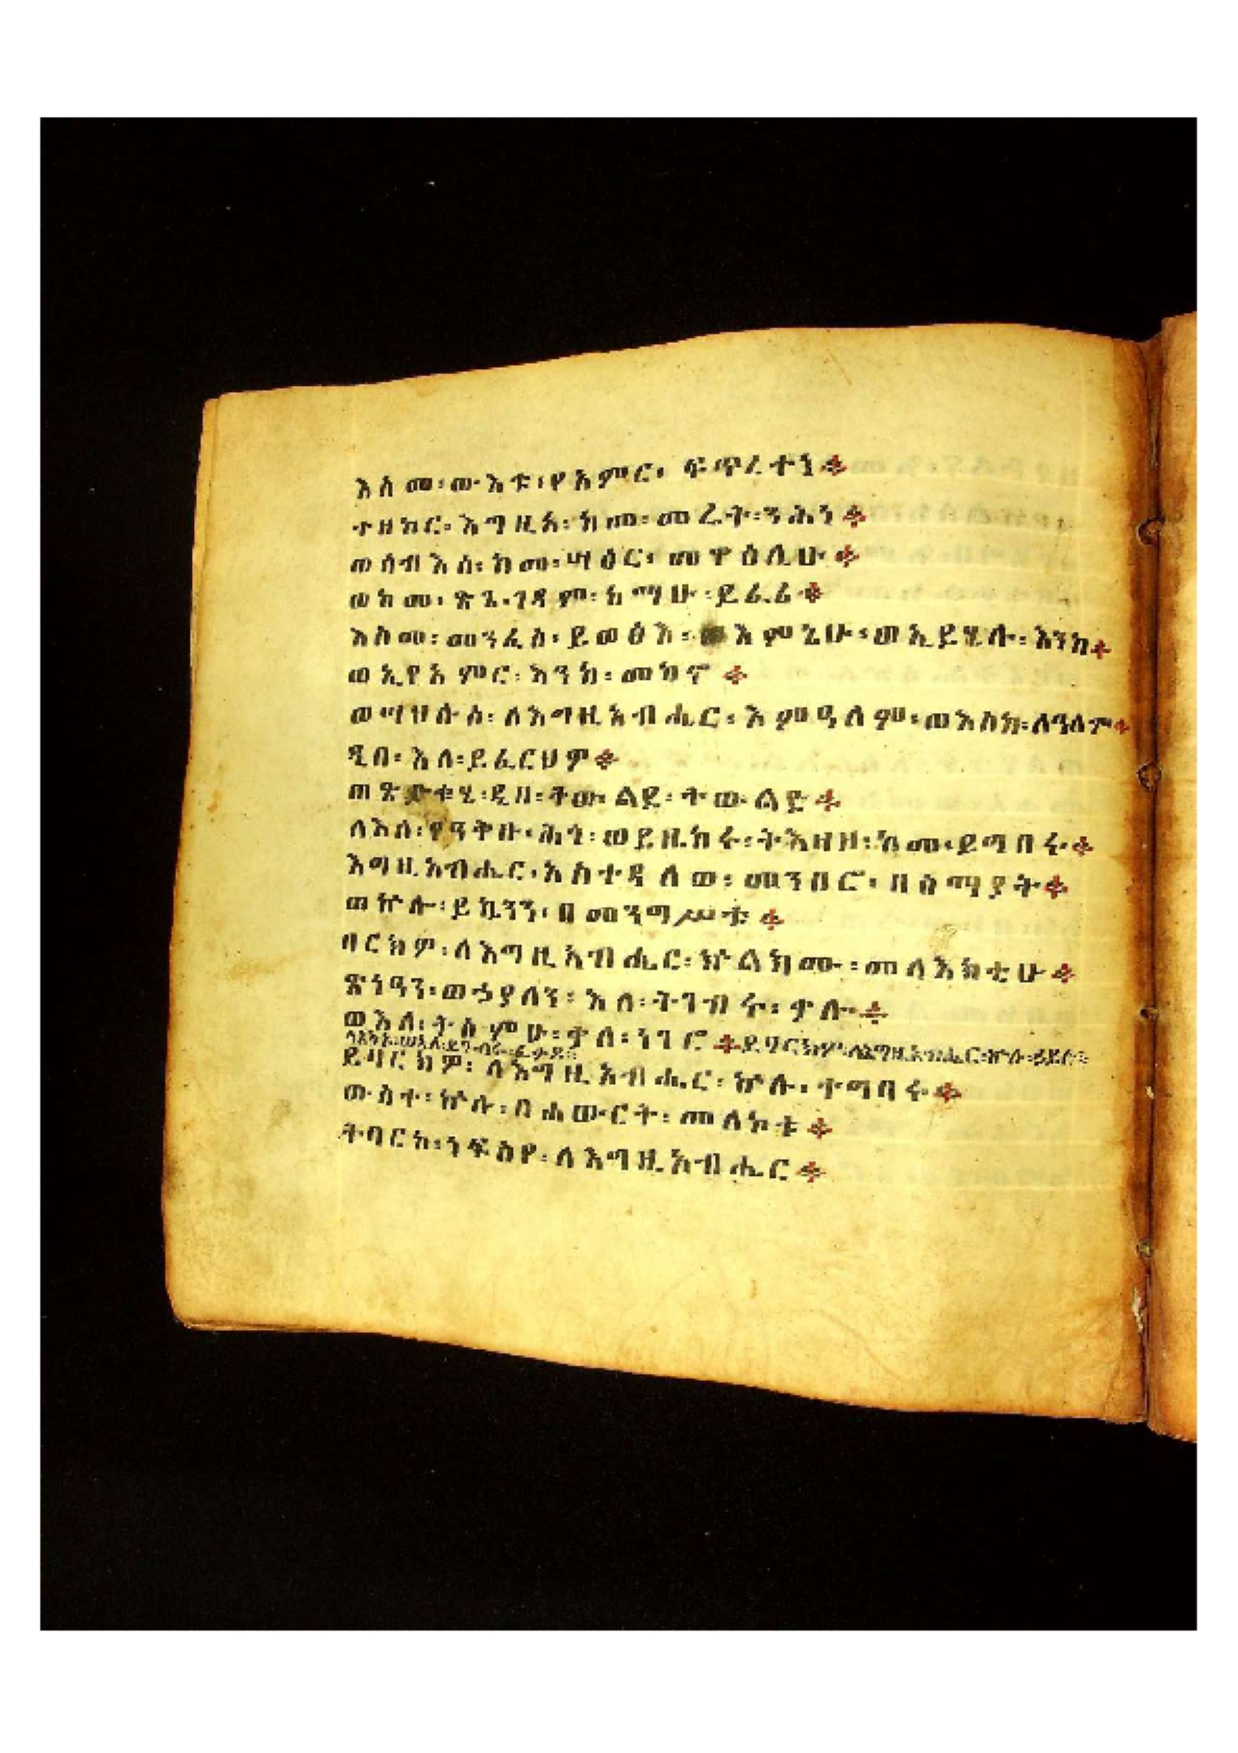 እስመ፡ውእቱ፡የአምር፡ ፍጥረተነ፨
ተዘከር፡እግዚኦ፡ከመ፡መሬት፡ንሕነ፨
ወሰብእሰ፡ከመ፡ሣዕር፡መዋዕሊሁ፨
ወከመ፡ጽጌ፡ገዳም፡ከማሁ፡ይፈሪ፨
እስመ፡መንፈስ፡ይወፅእ፡ እምኔሁ፡ወኢይሄሉ፡እንከ፨
ወኢየአምር፡እንከ፡መካኖ፨
ወሣህሉሰ፡ለእግዚአብሔር፡እምዓለም፡ወእስከ፡ለዓለም፨
ዲበ፡እለ፡ይፈርህዎ፨
ወጽድቁሂ፡ዲበ፡ትውልደ፡ትውልድ፨
ለእለ፡የዓቅቡ፡ሕጎ፡ወይዚከሩ፡ትእዛዘ፡ከመ፡ይግበሩ፨
እግዚአብሔር፡አስተዳለወ፡መንበሮ፡በሰማያት፨
ወኵሉ፡ይኳንን፡በመንግሥቱ፨
ባርክዎ፡ለእግዚአብሔር፡ኵልክሙ፡መላእክቲሁ፨
ጽኑዓን፡ወኃያላን፡እለ፡ትገብሩ፡ቃሉ፨
ወእለ፡ትሰምዑ፡ቃለ፡ነገሮ፨ይባርክዎ፡ለእግዚአብሔር፡ኵሉ፡ኃይሉ፡
ላእካኑ፡ወእለ፡ይገብሩ፡ፈቃዶ፡
ይባርክዎ፡ለእግዚአብሔር፡ኵሉ፡ተግባሩ፨
ውስተ፡ኵሉ፡በሐውርት፡መለኮቱ፨
ትባርኮ፡ነፍስየ፡ለእግዚአብሔር፨